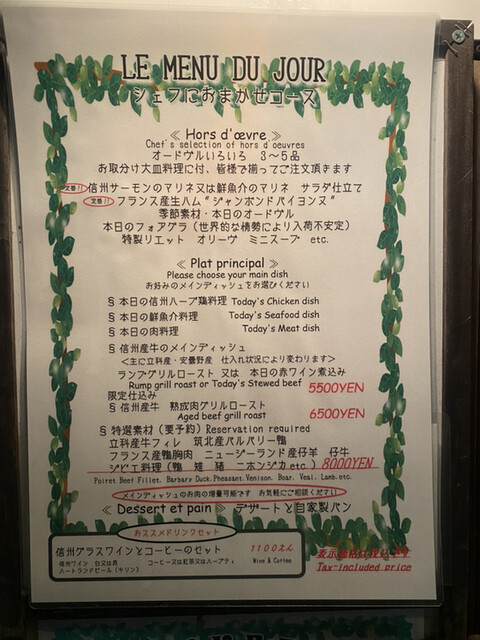 LE MENU DU JOUR
シェフにおまかせコース
≪ Hors d'œvre ≫
Chef's selection of hors d'oeuvres
オードヴルいろいろ 3〜5品
お取分け大皿料理に付、皆様で揃ってご注文頂きます
定番!! 信州サーモンのマリネ又は鮮魚介のマリネ サラダ仕立て
定番!! フランス産生ハム"ジャンボンドバイヨンヌ"
季節素材・本日のオードヴル
本日のフォアグラ(世界的な情勢により入荷不安定)
特製リエット オリーヴ ミニスープ etc.
≪ Plat principal ≫
Please choose your main dish
お好みのメインディッシュをお選びください
§ 本日の信州ハーブ鶏料理 Today's Chicken dish
§ 本日の鮮魚介料理 Today's Seafood dish
§ 本日の肉料理 Today's Meat dish
§ 信州産牛のメインディッシュ
<主に立科産・安曇野産 仕入れ状況により変わります>
ランプグリルロースト 又は 本日の赤ワイン煮込み
Rump grill roast or Today's Stewed beef 5500YEN
限定仕込み
§ 信州産牛 熟成肉グリルロースト
Aged beef grill roast 6500YEN
§ 特選素材(要予約) Reservation required
立科産牛フィレ 筑北産バルバリー鴨
フランス産鴨胸肉 ニュージーランド産仔羊 仔牛
ジビエ料理(鴨 雉 猪 ニホンジカ etc.) 8000YEN
Poiret Beef Fillet. Barbary Duck.Pheasant.Venison. Boar. Veal. Lamb.etc.
メインディッシュのお肉の増量可能です お気軽にご相談ください
≪ Dessert et pain ≫ デザートと自家製パン
おススメドリンクセット
信州グラスワインとコーヒーのセット 1100えん
信州ワイン 白又は赤 コーヒー又は紅茶又はハーブティ Wine & Coffee
ハートランドビール(キリン)
表示価格は税込です
Tax-included price